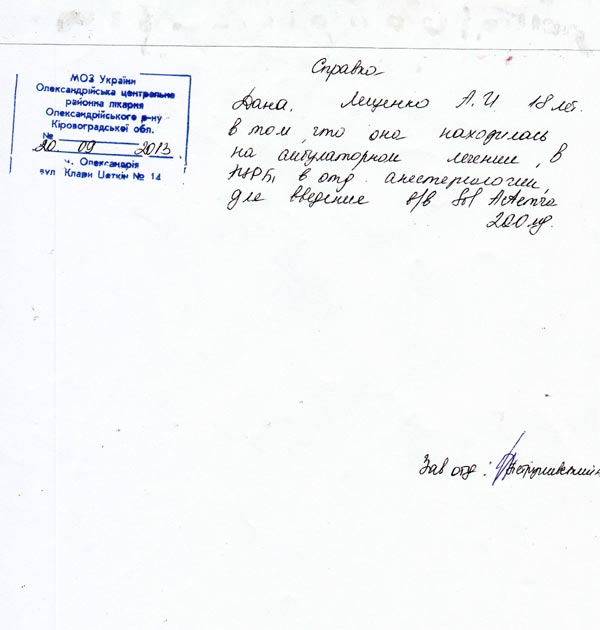 МОЗ України
Олександрійська центральна
районна лікарня
Олександрійського р-ну
Кіровоградської обл.
№
20 09 2013
м. Олександрія
вул Клари Цеткін № 14
Справка
Дана, Лещенко А.И 18 лет.
в том, что она находилась
на амбулаторном лечении, в
ЦРБ, в отд. анестезиологии,
для введение в/в Sol Actemra
200 мг.
Зав отд: